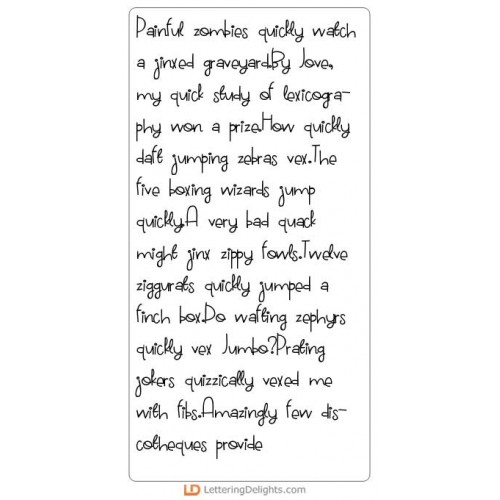 Painful zombies quickly watch
a jinxed graveyard.By Jove,
my quick study of lexicogra-
phy won a prize.How quickly
daft jumping zebras vex.The
five boxing wizards jump
quickly.A very bad quack
might jinx zippy fowls.Twelve
ziggurats quickly jumped a
finch box.Do wafting zephyrs
quickly vex Jumbo?Prating
jokers quizzically vexed me
with fibs.Amazingly few dis-
cotheques provide
LD LetteringDelights.com